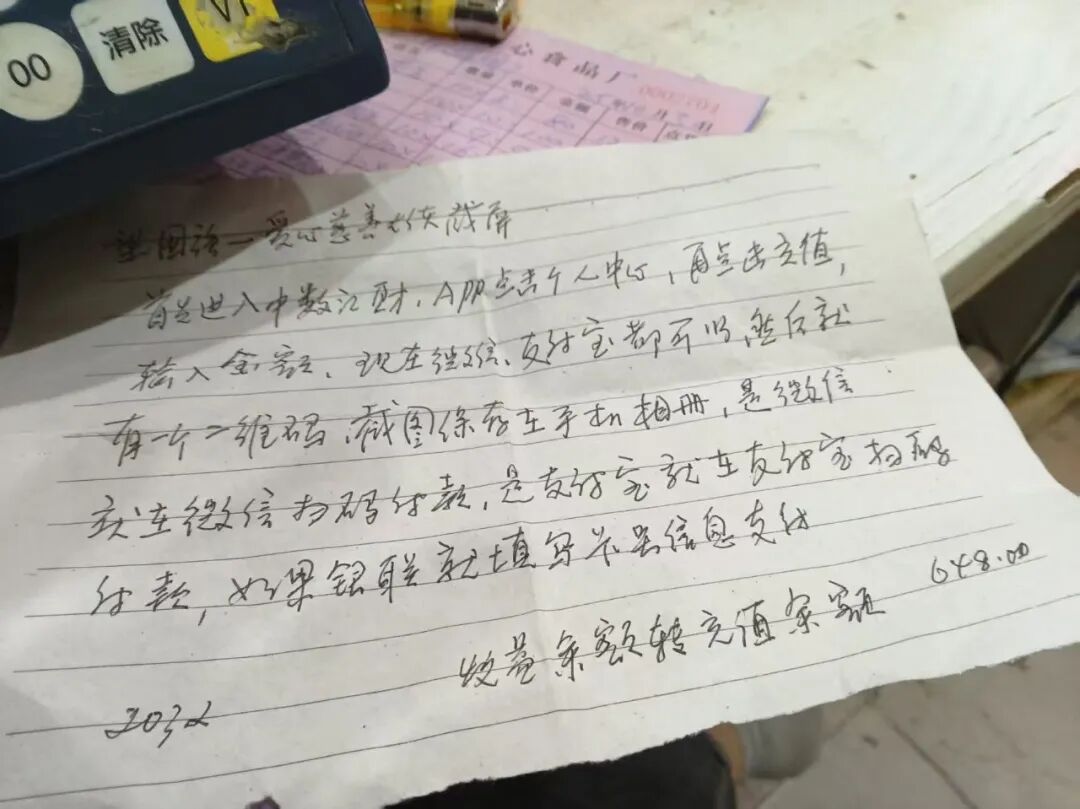 00
清除
心食品厂
数量 单价 金额 售价
爱心慈善 截屏
首先进入中数汇财、APP点击个人中心,再点击充值,
输入金额、现在微信、支付宝都可以,然后就
有一个二维码,截图保存在手机相册,是微信
就在微信扫码付款,是支付宝就在支付宝扫码
付款,如果银联就填写卡号信息支付
648.00
收益余额转充值余额
2032